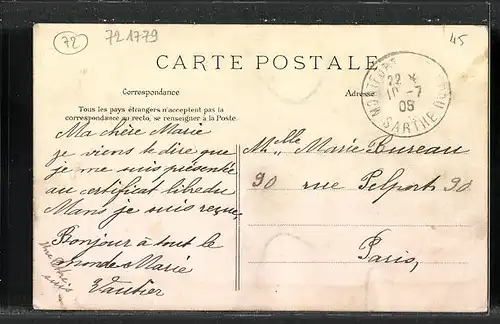 72
72 1779
45
CARTE POSTALE
Correspondance
Tous les pays étrangers n'acceptent pas la
correspondance au recto, se renseigner à la Poste.
22
10 -7
09
SARTHE
Ma chère Marie
je viens te dire que
je me suis présentée
au certificat libre du
Mans je suis reçue,
Bonjour à tout le
monde Marie
Vautier
Mlle Marie Bureau
90 rue Pelport 90
Paris,